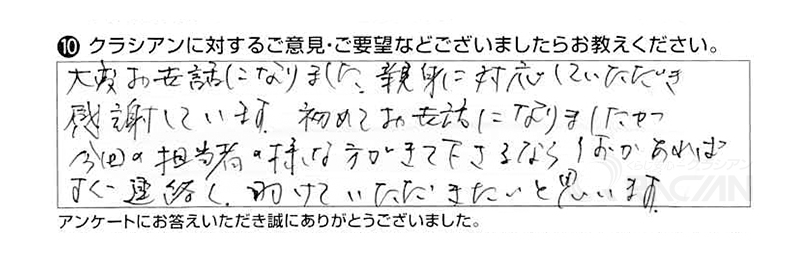 ⑩ クラシアンに対するご意見・ご要望などございましたらお教えください。
大変お世話になりました、親身に対応していただき
感謝しています。初めてお世話になりましたが
今回の担当者の様な方がきて下さるなら何かあれば
すぐ連絡し、助けていただきたいと思います。
アンケートにお答えいただき誠にありがとうございました。